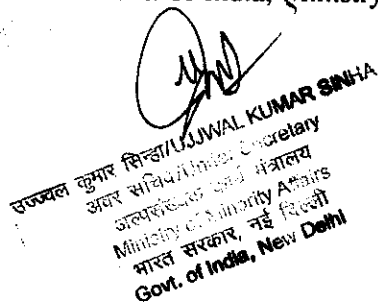 of India,
उज्ज्वल कुमार सिन्हा/UJJWAL KUMAR SINHA
अवर सचिव/Under Secretary
अल्पसंख्यक कार्य मंत्रालय
Ministry of Minority Affairs
भारत सरकार, नई दिल्ली
Govt. of India, New Delhi